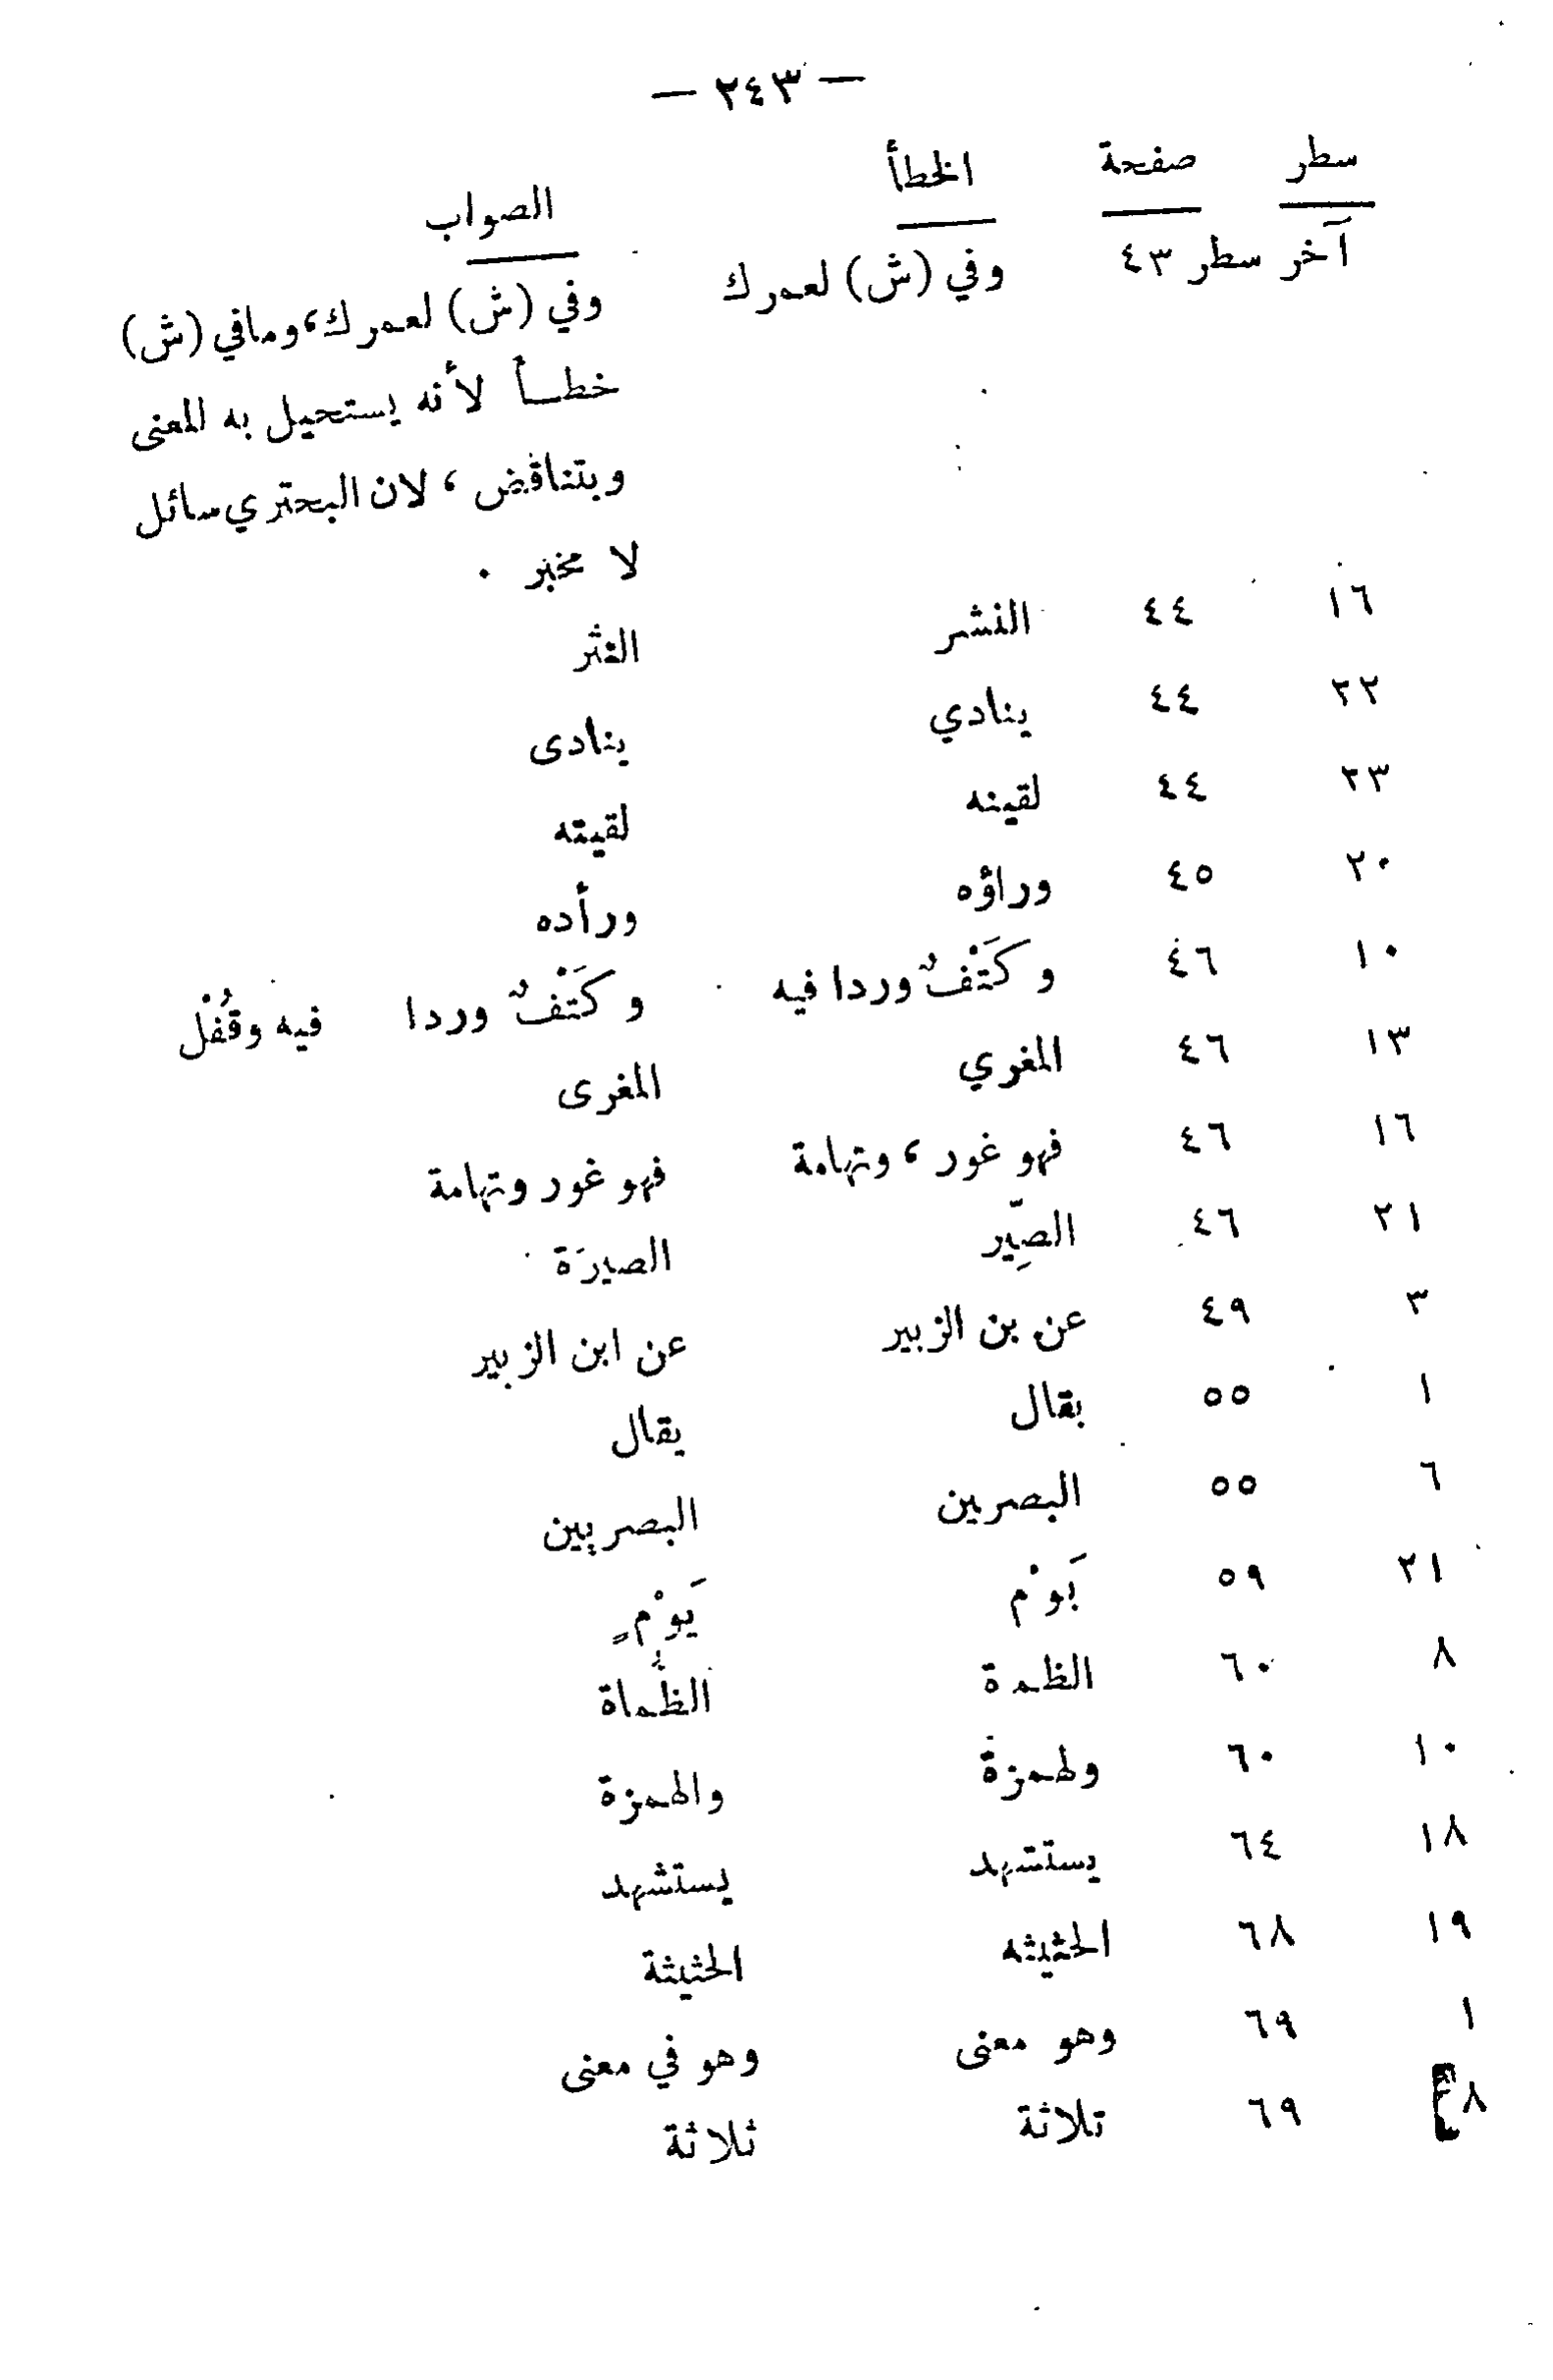 — ٢٤٣ —
سطر صفحة الخطأ الصواب
آخر سطر ٤٣ وفي (ش) لعمرك وفي (ش) لعمرك، ومافي (ش)
خطأ لأنه يستحيل به المعنى
وبتناقض، لان البحتري سائل
لا مخبر .
١٦ ٤٤ النشر النثر
٢٢ ٤٤ ينادي ينادى
٢٣ ٤٤ لقينه لقيته
٢٠ ٤٥ وراؤه ورأده
١٠ ٤٦ وكَتَفْ وردا فيه وكَتَفْ وردا فيه وقُفْل
١٣ ٤٦ المغري المغرى
١٦ ٤٦ فهو غور، وتهامة فهو غور وتهامة
٢١ ٤٦ الصِّير الصيرَة
٣ ٤٩ عن بن الزبير عن ابن الزبير
١ ٥٥ بقال يقال
٦ ٥٥ البصرين البصريين
٢١ ٥٩ بَوْم يَوْمٍ
٨ ٦٠ الظمة الظماة
١٠ ٦٠ ولهمزة والهمزة
١٨ ٦٤ يستسهد يستشهد
١٩ ٦٨ الحثيثه الحثيثة
١ ٦٩ وهو معنى وهو في معنى
٨ ٦٩ تلاثة ثلاثة